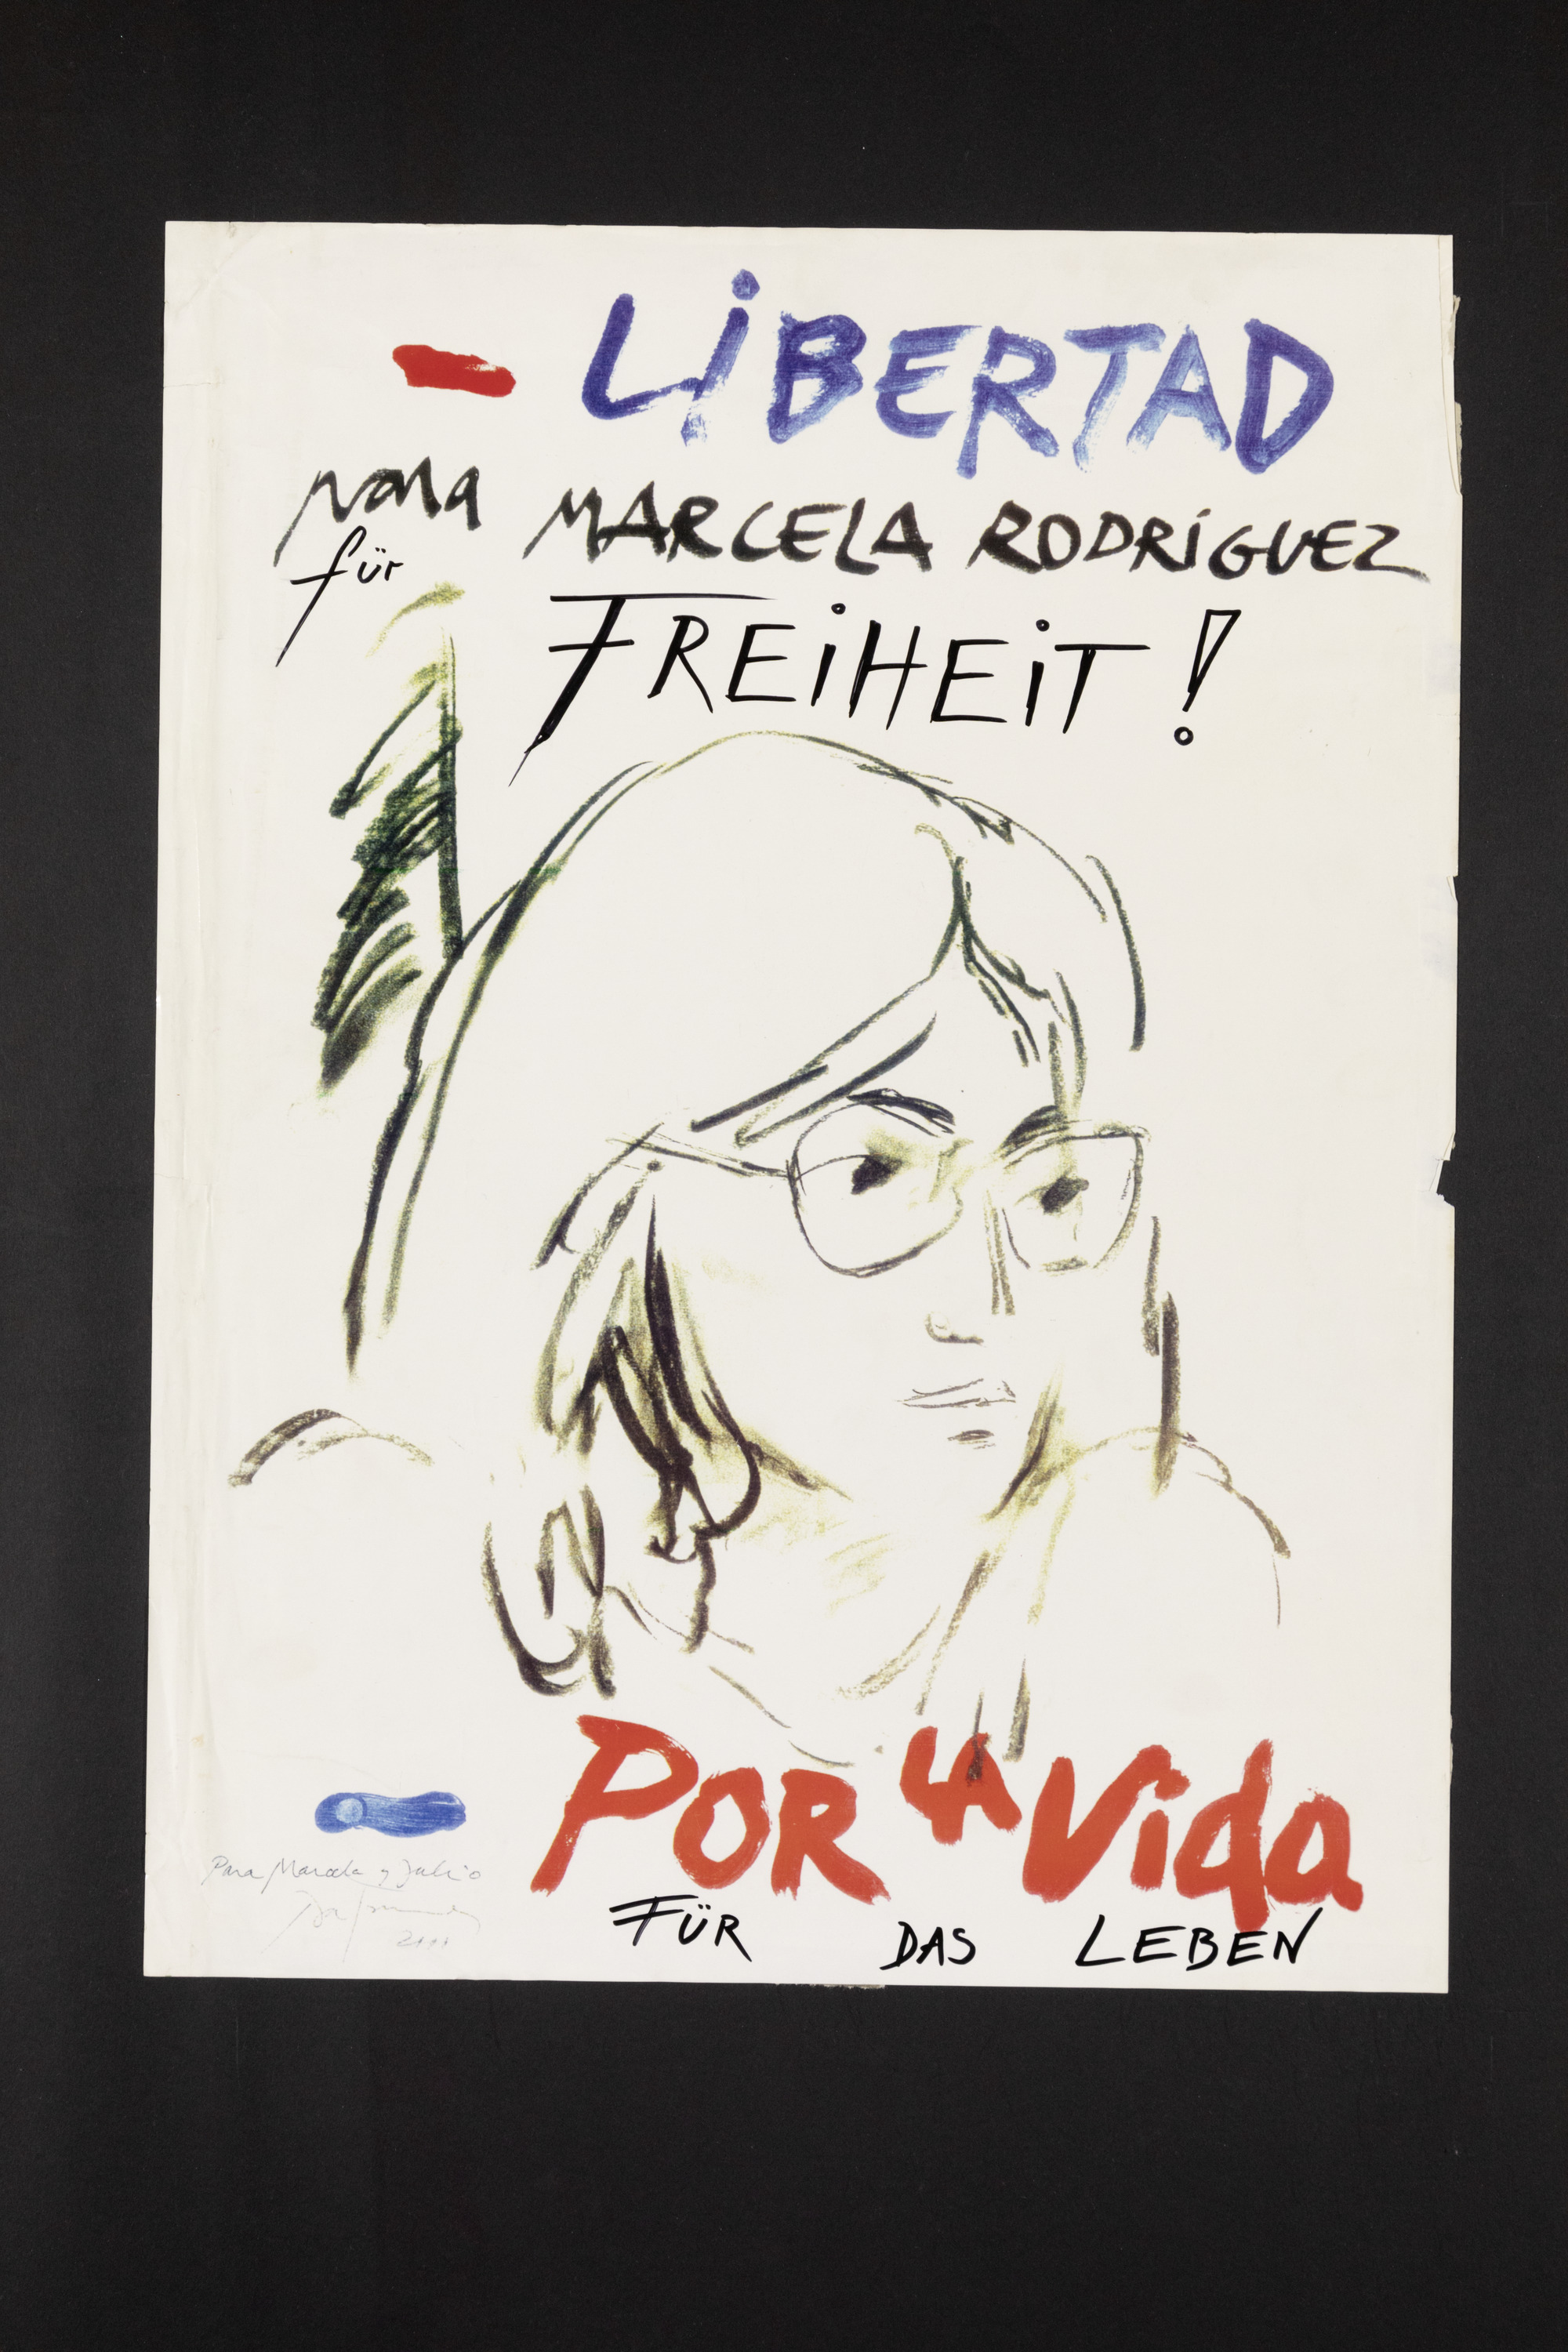 LiBERTAD
para MARCELA RODRÍGUEZ
für FREiHEiT!
POR LA Vida
FÜR DAS LEBEN
Para Marcela y Julio